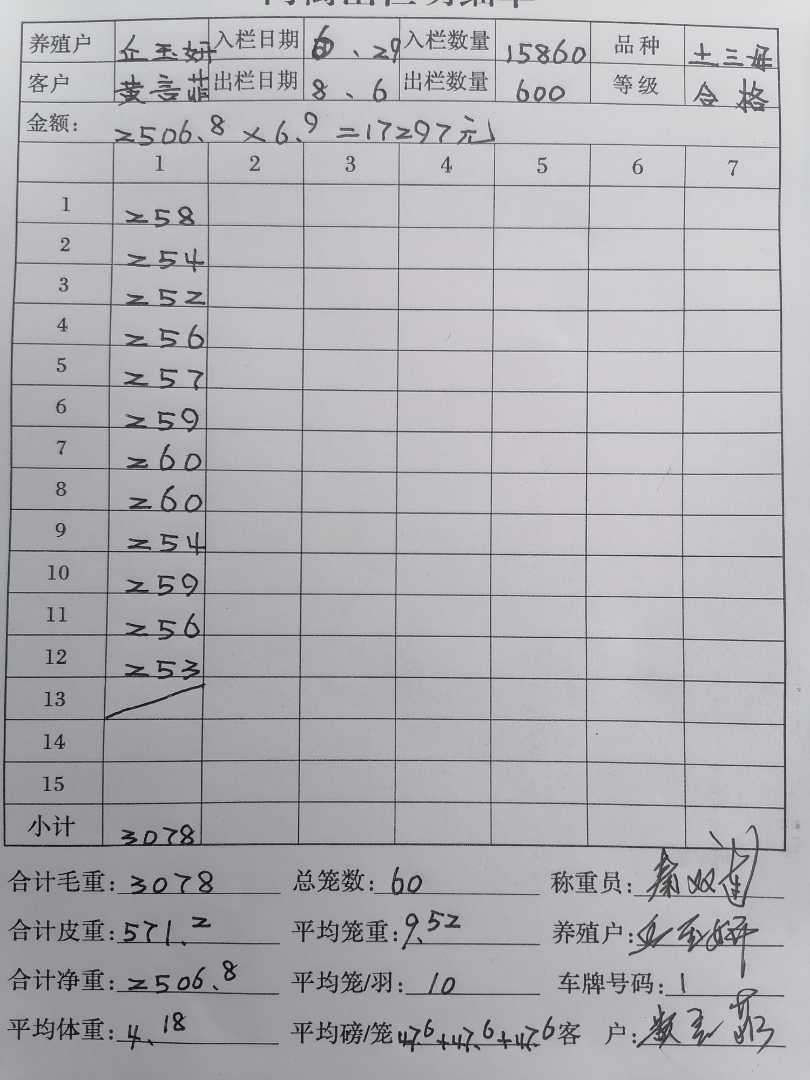 养殖户 丘玉妍 入栏日期 6、29 入栏数量 15860 品种 土三母
客户 黄言菲 出栏日期 8、6 出栏数量 600 等级 合格
金额: 2506.8 × 6.9 = 17297元
1 2 3 4 5 6 7
1 258
2 254
3 252
4 256
5 257
6 259
7 260
8 260
9 254
10 259
11 256
12 253
13
14
15
小计 3078
合计毛重: 3078 总笼数: 60 称重员:
合计皮重: 571.2 平均笼重: 9.52 养殖户: 丘玉妍
合计净重: 2506.8 平均笼/羽: 10 车牌号码: 1
平均体重: 4.18 平均磅/笼 47.6+47.6+47.6 客 户: